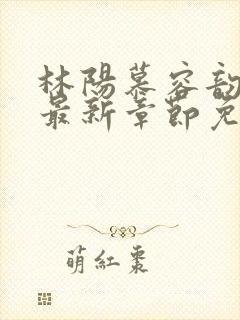 林陽慕容
最新章節免
萌紅棗